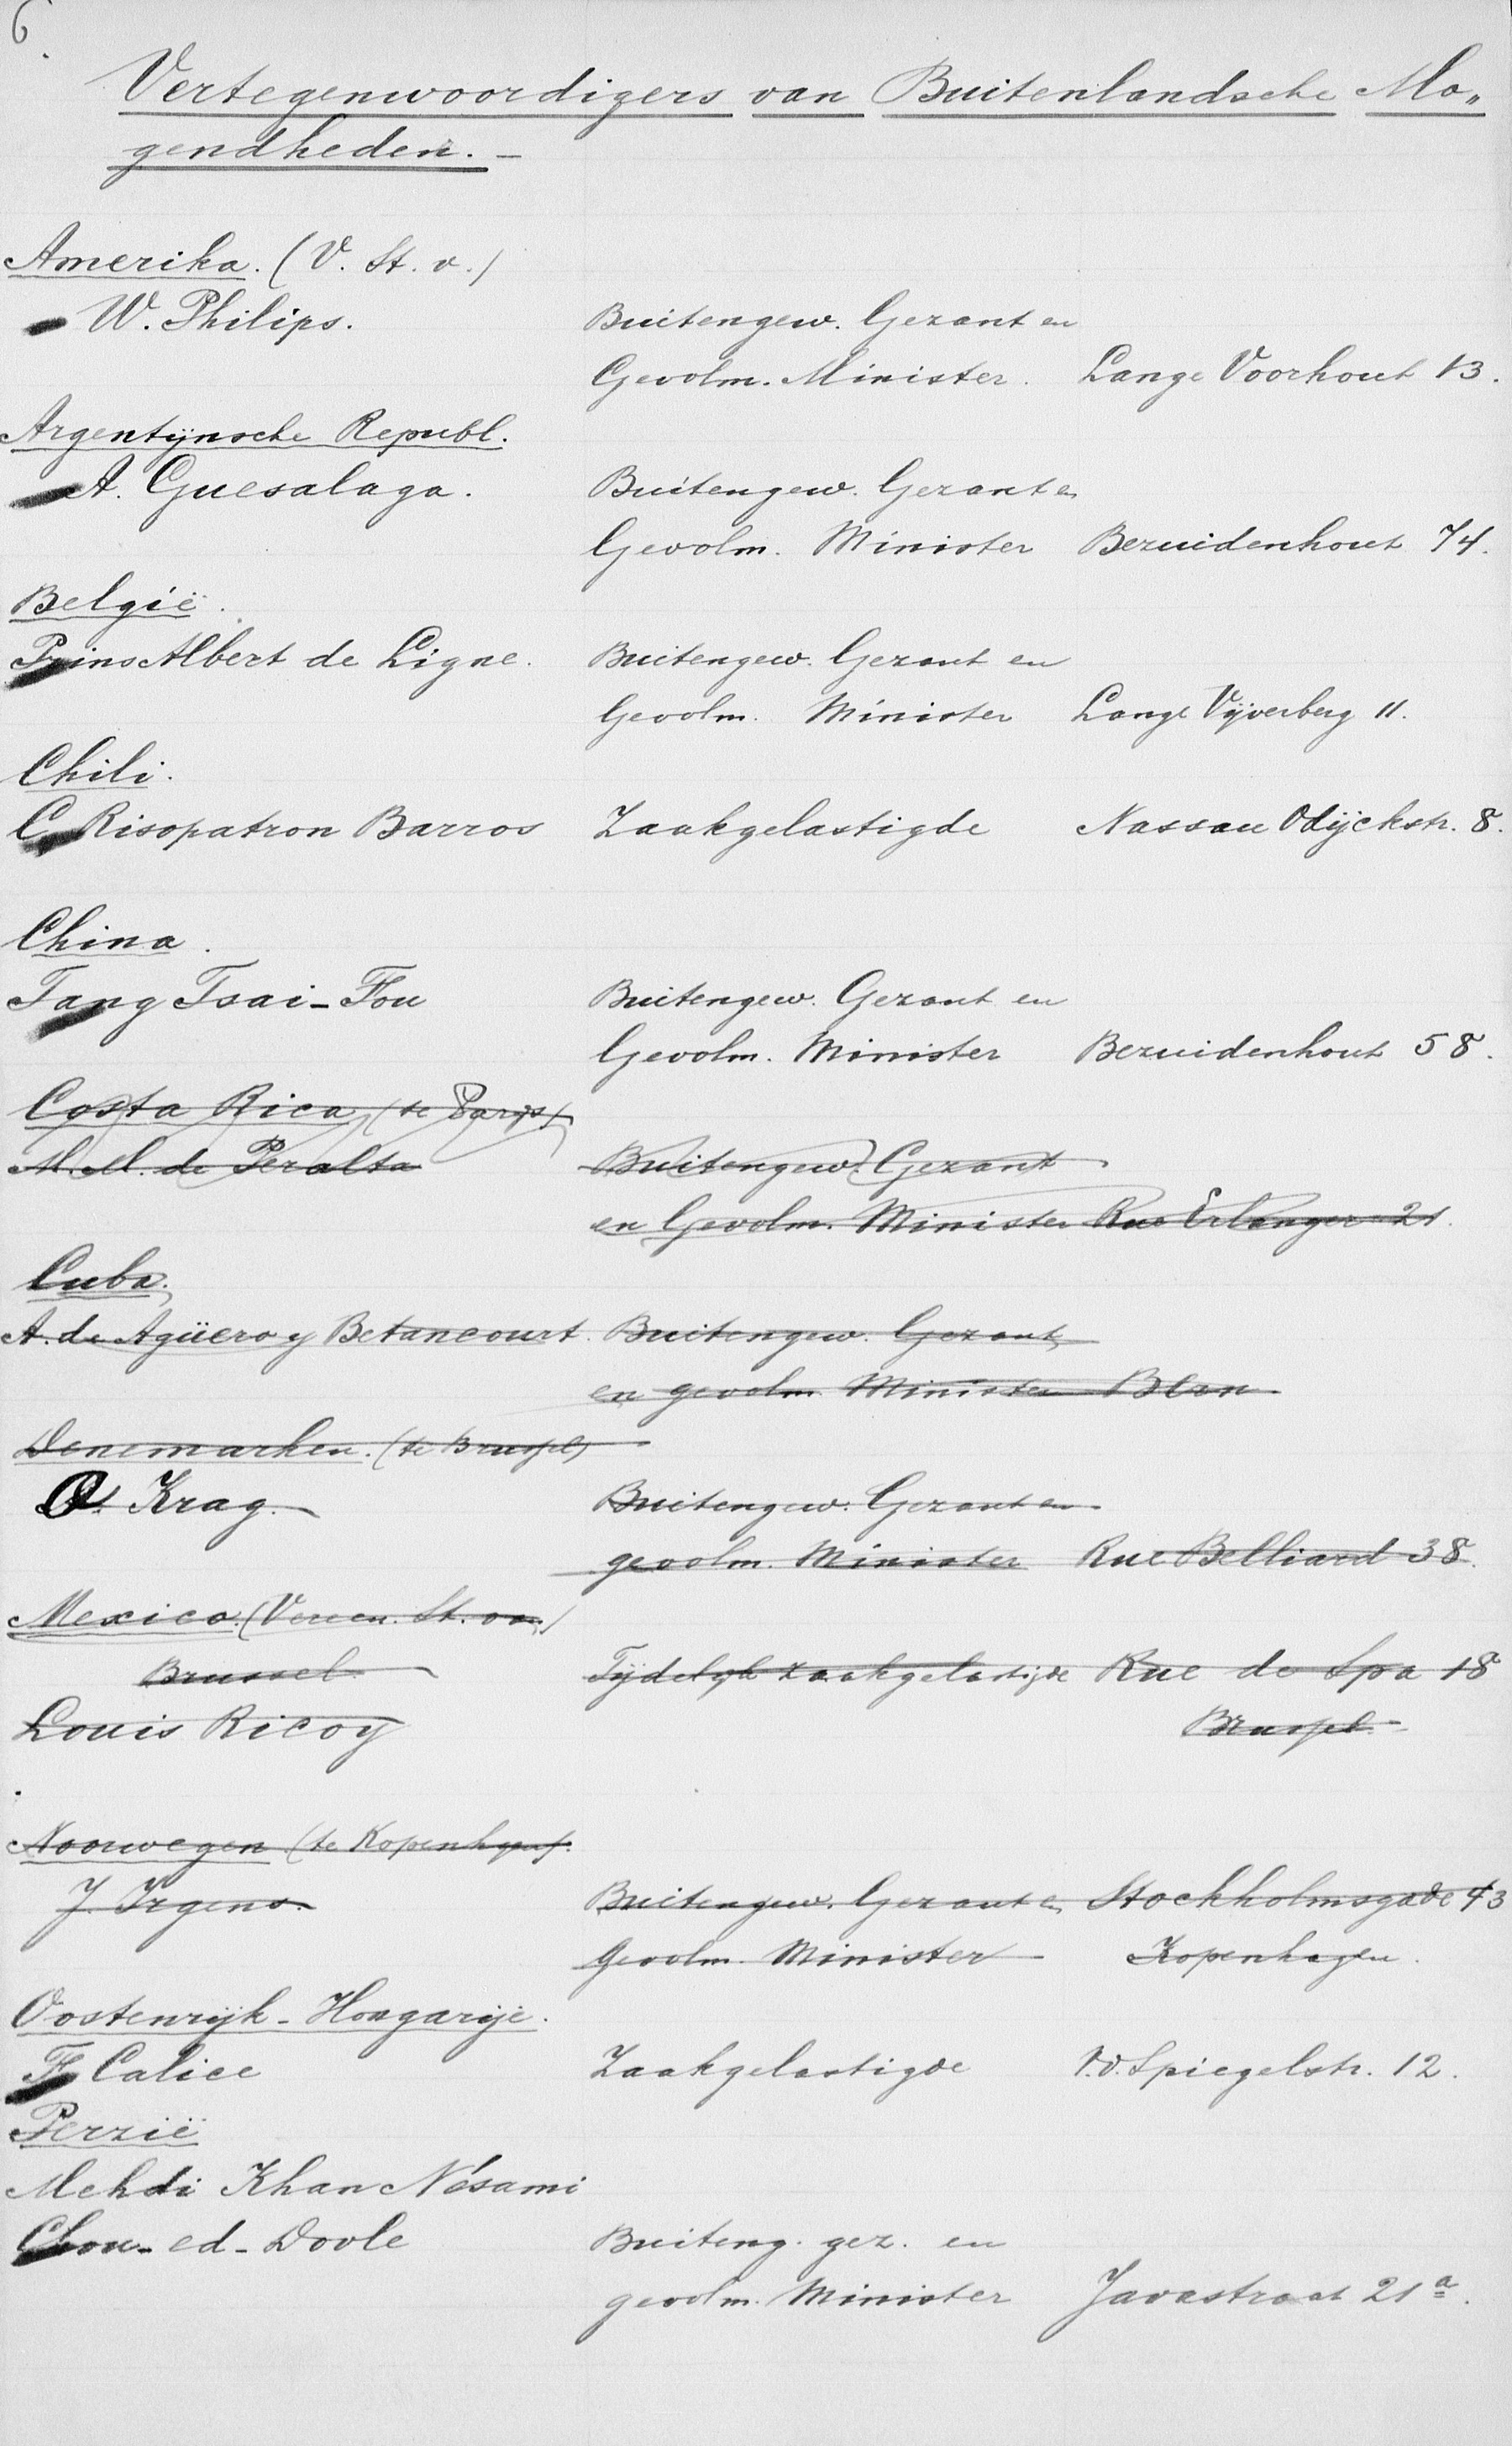 6.
Vertegenwoordigers van Buitenlandsche Mo„
gendheden.-
Amerika. (V. St. v.)
W. Philips. Buitengew. Gezant en
Gevolm. Minister. Lange Voorhout 13.
Argentijnsche Republ.
A. Guesalaga. Buitengew. Gezant en
Gevolm. Minister Bezuidenhout 74.
België.
Prins Albert de Ligne. Buitengew. Gezant en
Gevolm. Minister Lange Vijverberg 11.
Chili.
C. Risopatron Barros Zaakgelastigde Nassau Odijckstr. 8.
China.
Tang Tsai-Fou Buitengew. Gezant en
Gevolm. Minister Bezuidenhout 58.
Costa Rica (te Parijs)
M. M. de Peralta Buitengew. Gezant
en Gevolm. Minister Rue Erlanger 21.
Cuba.
A. de Agüero y Betancourt. Buitengew. Gezant
en gevolm. Minister
Denemarken. (te Brussel)
O. Krag. Buitengew. Gezant en
gevolm. Minister Rue Belliard 38.
Mexico. (Vereen. St. van)
Brussel Tijdelijk zaakgelastigde Rue de Spa 18
Louis Ricoy Brussel.
Noorwegen (te Kopenhagen).
J. Irgens. Buitengew. Gezant en Stockholmsgade 43
Gevolm. Minister Kopenhagen.
Oostenrijk-Hongarije.
F. Calice Zaakgelastigde v.d. Spiegelstr. 12.
Perzië
Mehdi Khan Nésami
Chou-ed-Dovle Buiteng. gez. en
gevolm. Minister Javastraat 21a.